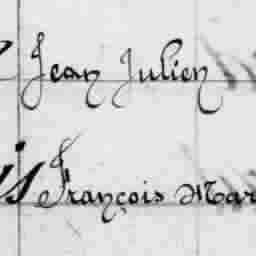 Jean Julien
is François Mar